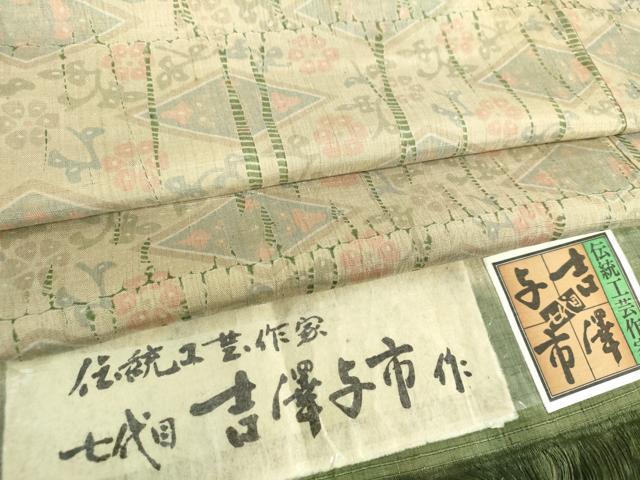 伝統工芸作家
七代目 吉澤与市 作
伝統工芸作家
吉澤
与市